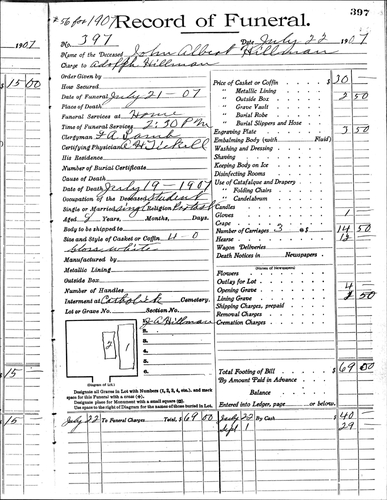 #56 for 1907
Record of Funeral.
397
1907
No. 397
Date July 22 1907
Name of the Deceased John Albert Hillman
Charge to Adolph Hillman
Order Given by
How Secured
Date of Funeral July 21-07
Place of Death
Funeral Services at Home
Time of Funeral Services 2:30 P.M.
Clergyman F A
Certifying Physician A H
His Residence
Number of Burial Certificate
Cause of Death
Date of Death July 19-1907
Occupation of the Deceased Student
Single or Married Sing Religion
Aged Years, Months, Days.
Body to be shipped to
Size and Style of Casket or Coffin 4-0
Gloss White
Manufactured by
Metallic Lining
Outside Box
Number of Handles
Interment at Catholick Cemetery.
Lot or Grave No. Section No.
1. J A Hillman
2.
3.
4.
5.
6.
2
1
(Diagram of Lot.)
Designate all Graves in Lot with Numbers (1, 2, 3, 4, etc.), and mark
space for this Funeral with a cross (+).
Designate place for Monument with a small square (□).
Use space to the right of Diagram for the names of those buried in Lot.
Price of Casket or Coffin $30
" Metallic Lining
" Outside Box 2 50
" Grave Vault
" Burial Robe
" Burial Slippers and Hose
Engraving Plate 3 50
Embalming Body (with Fluid)
Washing and Dressing
Shaving
Keeping Body on Ice
Disinfecting Rooms
Use of Catafalque and Drapery
" Folding Chairs
" Candelabrum
Candles
Gloves 1
Crape
Number of Carriages 3 14 50
Hearse
Wagon Deliveries
Death Notices in Newspapers
(Names of Newspapers)
Flowers
Outlay for Lot
Opening Grave 4
Lining Grave 50
Shipping Charges, prepaid
Removal Charges
Cremation Charges
Total Footing of Bill $69 00
By Amount Paid in Advance
Balance
Entered into Ledger, page or below.
July 22 To Funeral Charges Total, $69 00
July 22 By Cash $40
Sept 1 29
15 00
$15
$15